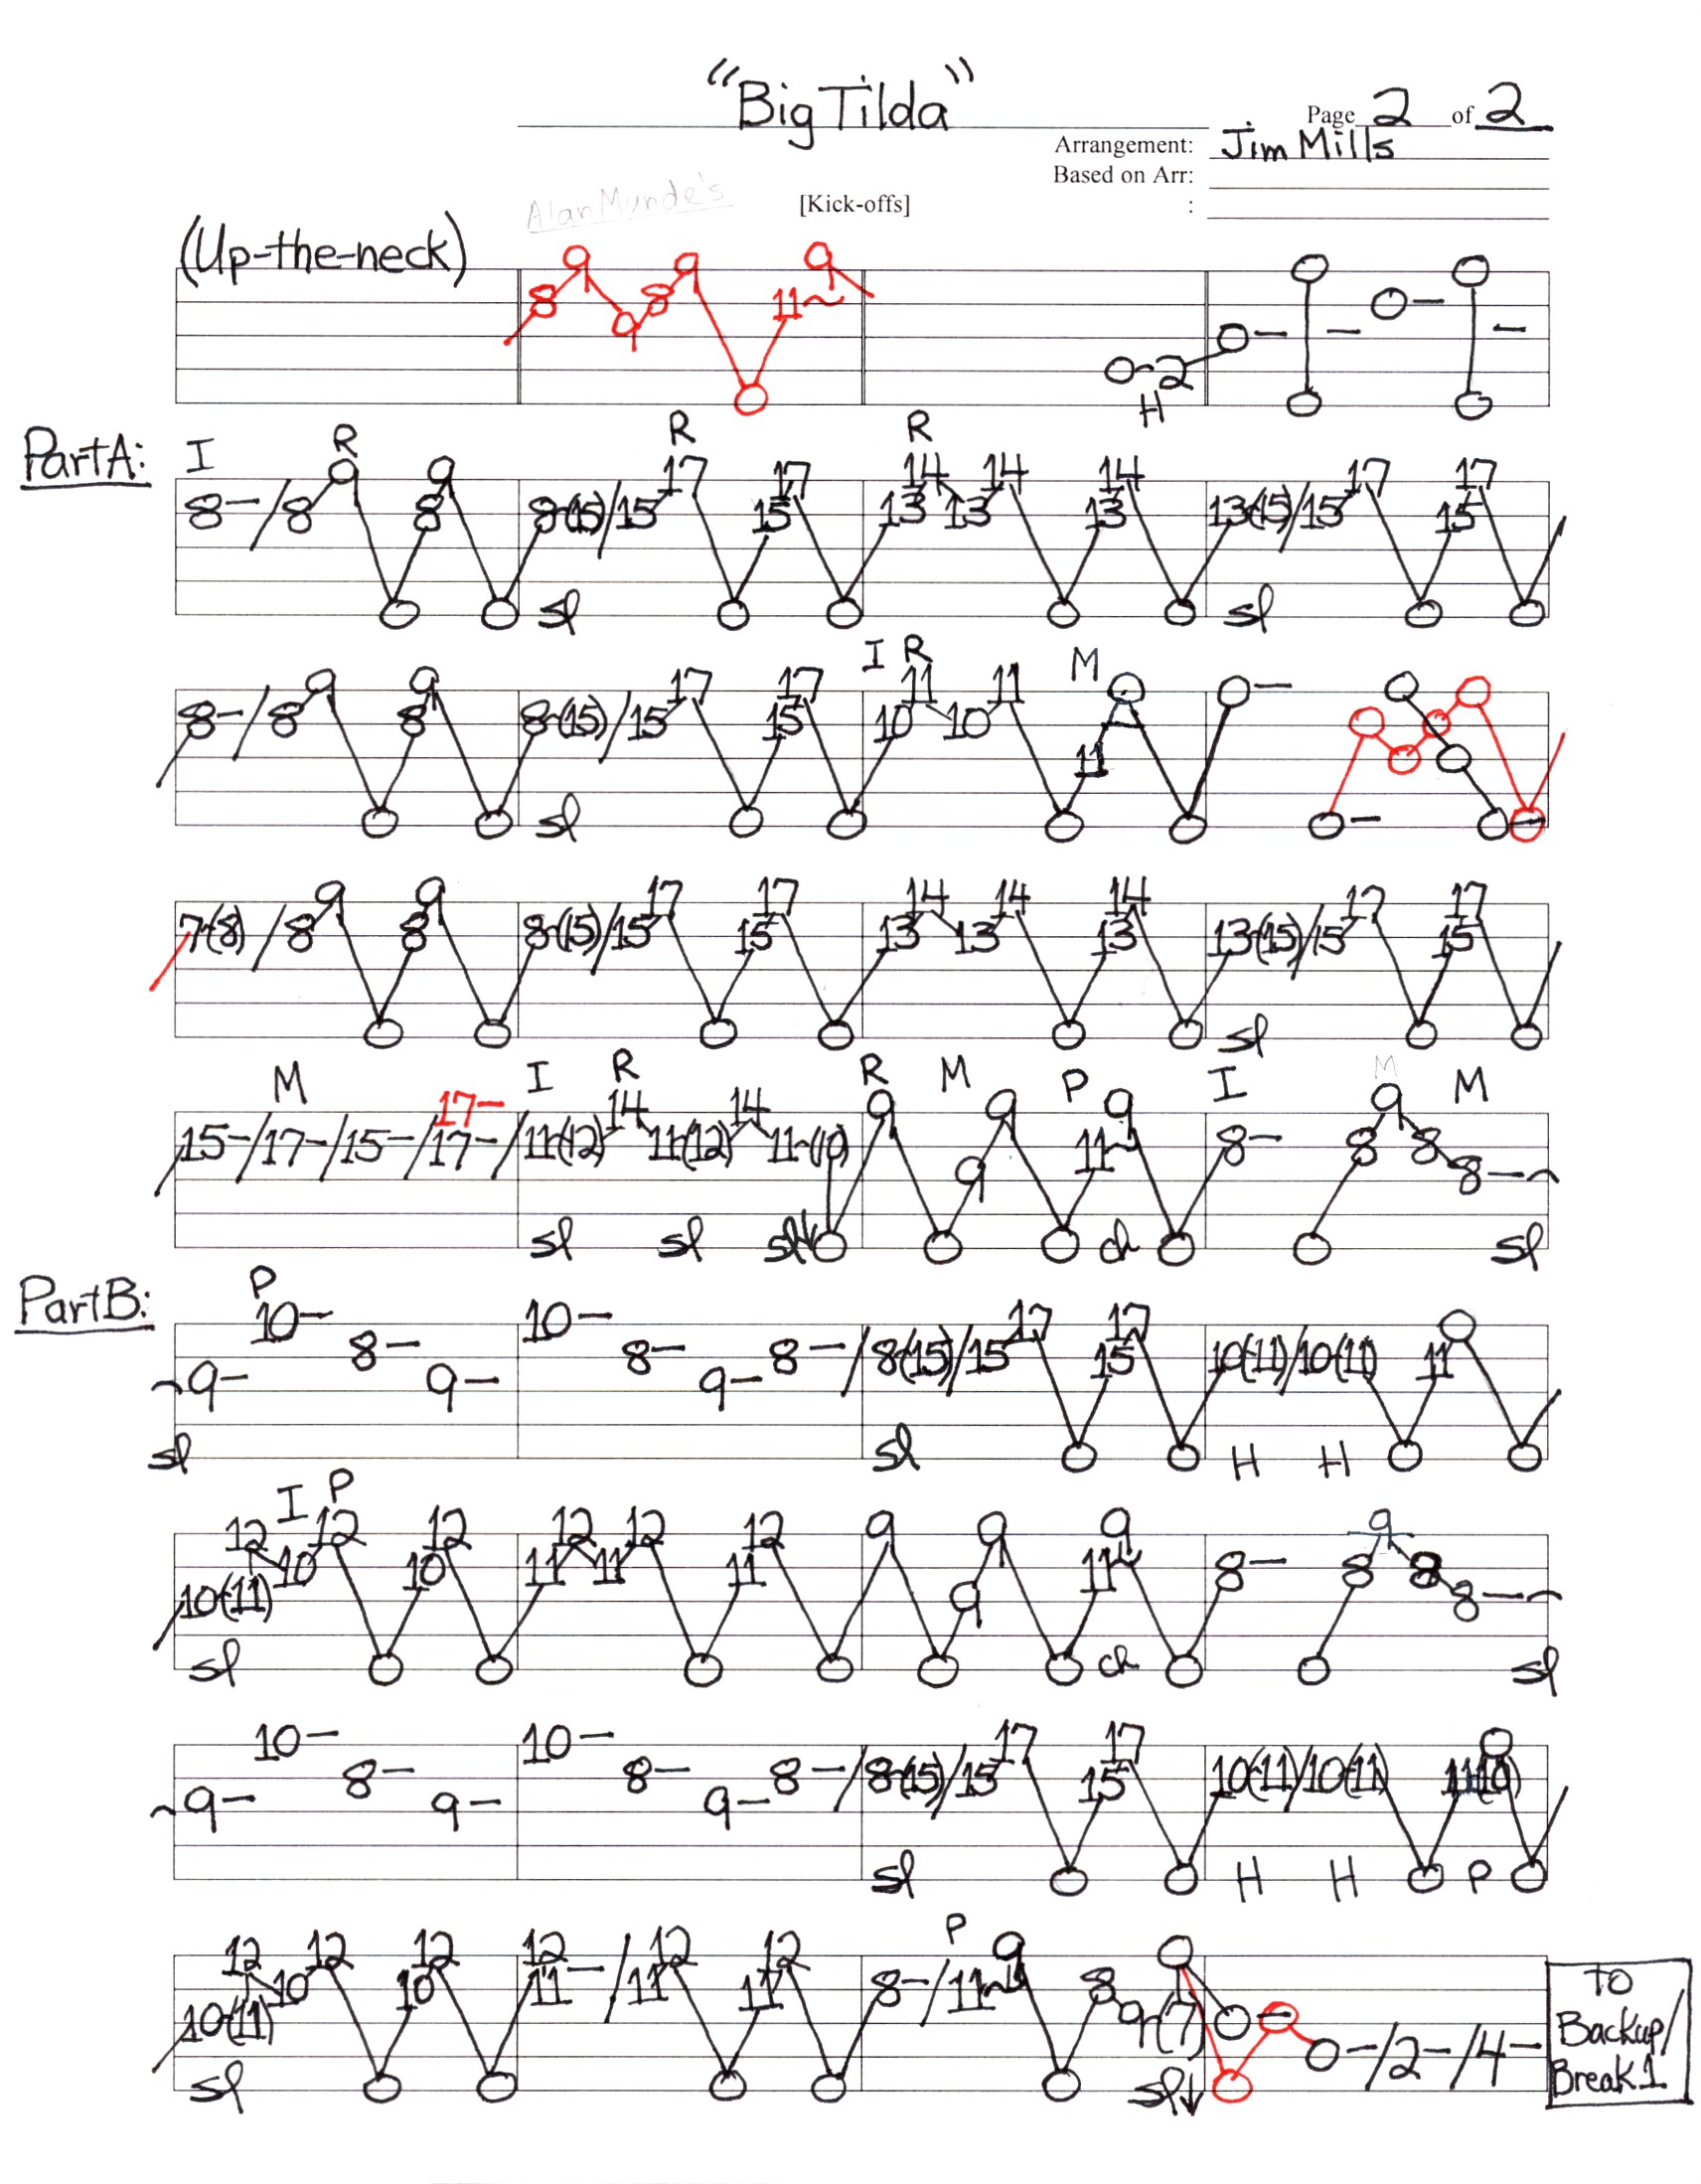 "Big Tilda"
Page 2 of 2
Arrangement: Jim Mills
Based on Arr:
Alan Munde's [Kick-offs] :
(Up-the-neck)
8 9 9 8 9 0 11~ 9 0-2 0 – 0 0 – 0 – 0 0 –
H
Part A: I R R R
8 – / 8 9 0 8 9 0 8(15) / 15 17 0 15 17 0 13 14 13 14 0 13 14 0 13(15) / 15 17 0 15 17 0
sl sl
I R M
8 – / 8 9 0 8 9 0 8-(15) / 15 17 0 15 17 0 10 11 10 11 0 11 0 0 0 – 0 – 0 0 0 0 0 0 0 0 –
sl
7-(8) / 8 9 0 8 9 0 8-(15) / 15 17 0 15 17 0 13 14 13 14 0 13 14 0 13(15) / 15 17 0 15 17 0
sl
M 17 – I R R M P I M M
15 – / 17 – / 15 – / 17 – / 11-(12) 14 11-(12) 14 11-(10) 0 9 0 9 9 0 11~ 9 0 8 – 0 8 9 8 8 – ~
sl sl sl↓ ch sl
Part B: P
~9 – 10 – 8 – 9 – 10 – 8 – 9 – 8 – / 8(15) / 15 17 0 15 17 0 10(11) / 10(11) 0 11 0 0
sl sl H H
I P
10(11) 12 10 12 0 10 12 0 11 12 11 12 0 11 12 0 9 0 9 9 0 11 9 0 8 – 0 8 9 8 8 – ~
sl ch sl
~9 – 10 – 8 – 9 – 10 – 8 – 9 – 8 – / 8(15) / 15 17 0 15 17 0 10(11) / 10(11) 0 11(10) 0 0
sl H H P
P
10(11) 12 10 12 0 10 12 0 12 11 – / 11 12 0 11 12 0 8 – / 11~ 9 0 8 9(7) 0 0 0 0 – 0 – / 2 – / 4 –
sl sl↓
TO
Backup/
Break 1